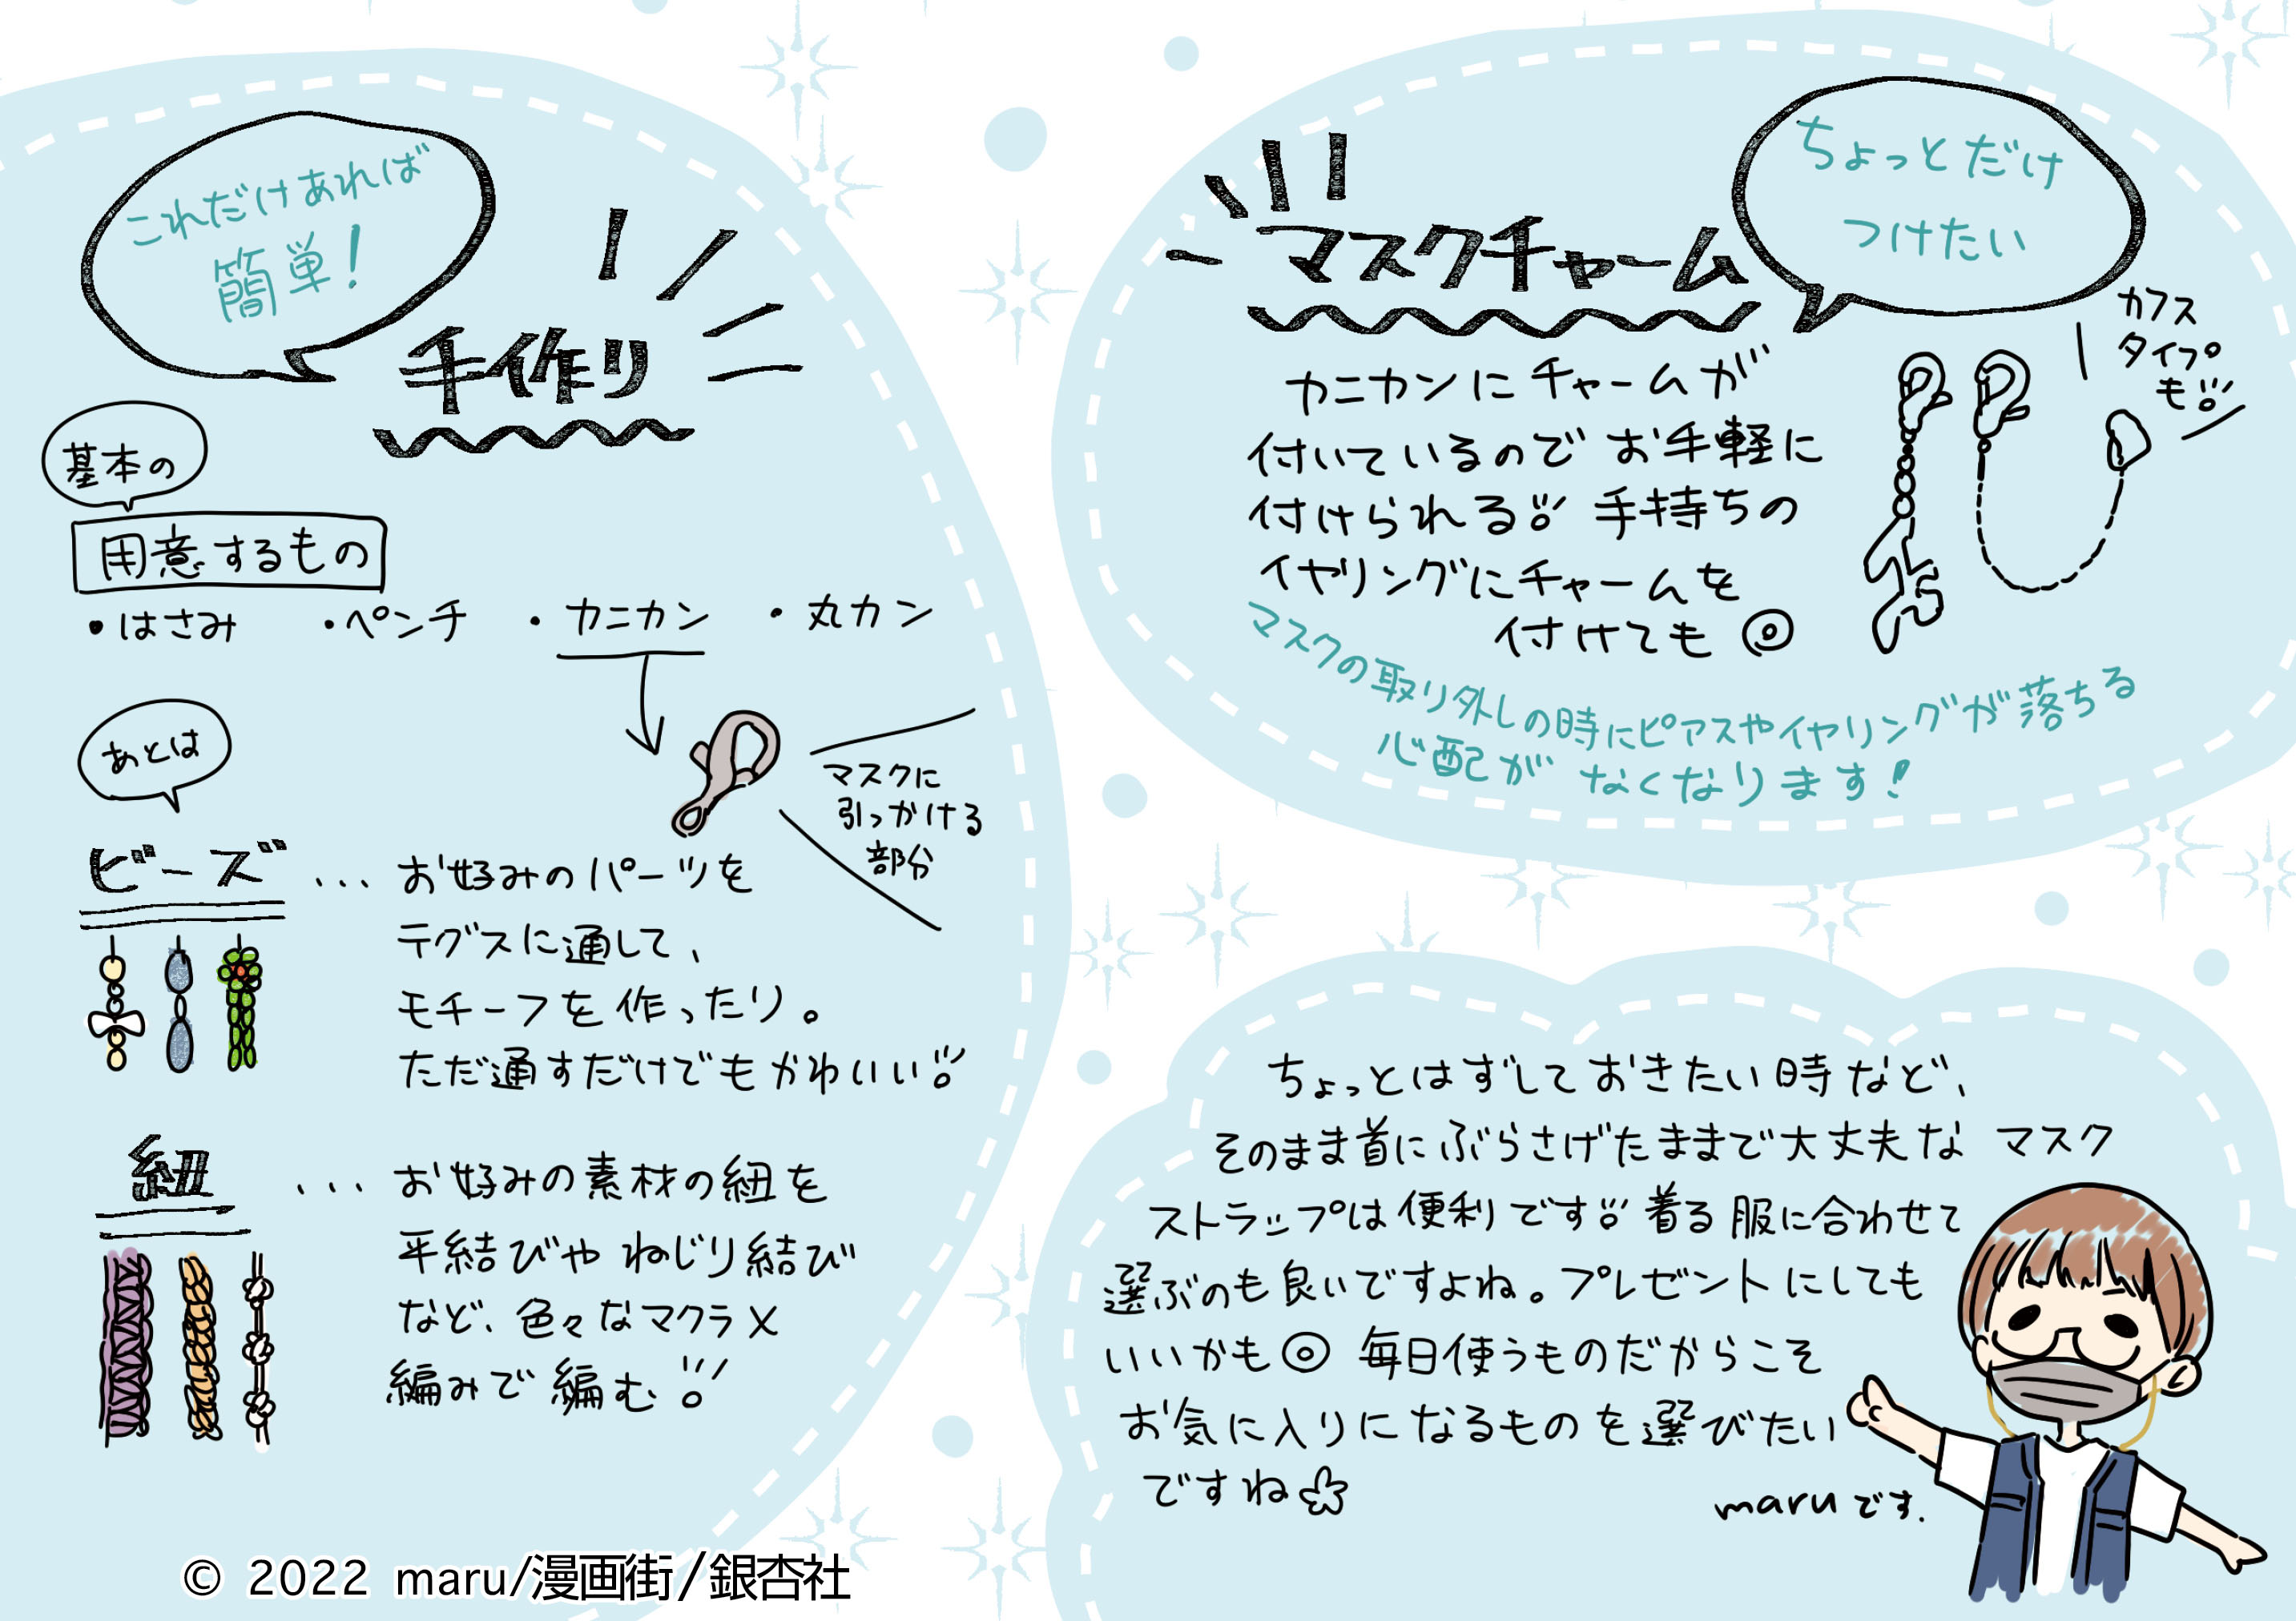 ちょっとだけ
つけたい
マスクチャーム
カフス
タイプ
も
カニカンにチャームが
付いているのでお手軽に
付けられる!! 手持ちの
イヤリングにチャームを
付けても◎
マスクの取り外しの時にピアスやイヤリングが落ちる
心配がなくなります!
ちょっとはずしておきたい時など、
そのまま首にぶらさげたままで大丈夫なマスク
ストラップは便利です!! 着る服に合わせて
選ぶのも良いですよね。プレゼントにしても
いいかも◎ 毎日使うものだからこそ
お気に入りになるものを選びたい
ですね
maruです.
これだけあれば
簡単!
手作り
基本の
用意するもの
・はさみ ・ペンチ ・カニカン ・丸カン
マスクに
引っかける
部分
あとは
ビーズ ... お好みのパーツを
テグスに通して、
モチーフを作ったり。
ただ通すだけでもかわいい!!
紐 ... お好みの素材の紐を
平結びやねじり結び
など、色々なマクラメ
編みで編む!!
© 2022 maru/漫画街/銀杏社